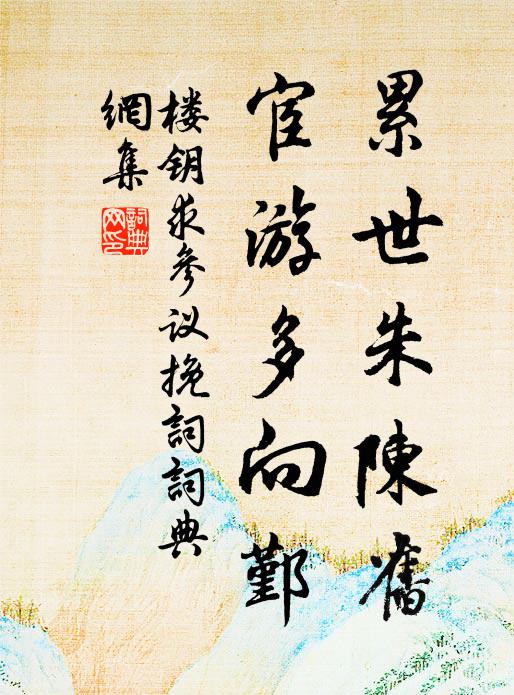 累世朱陳舊
宦游多向鄞
楼钥求參议挽詞詞典
網集
詞典
网印